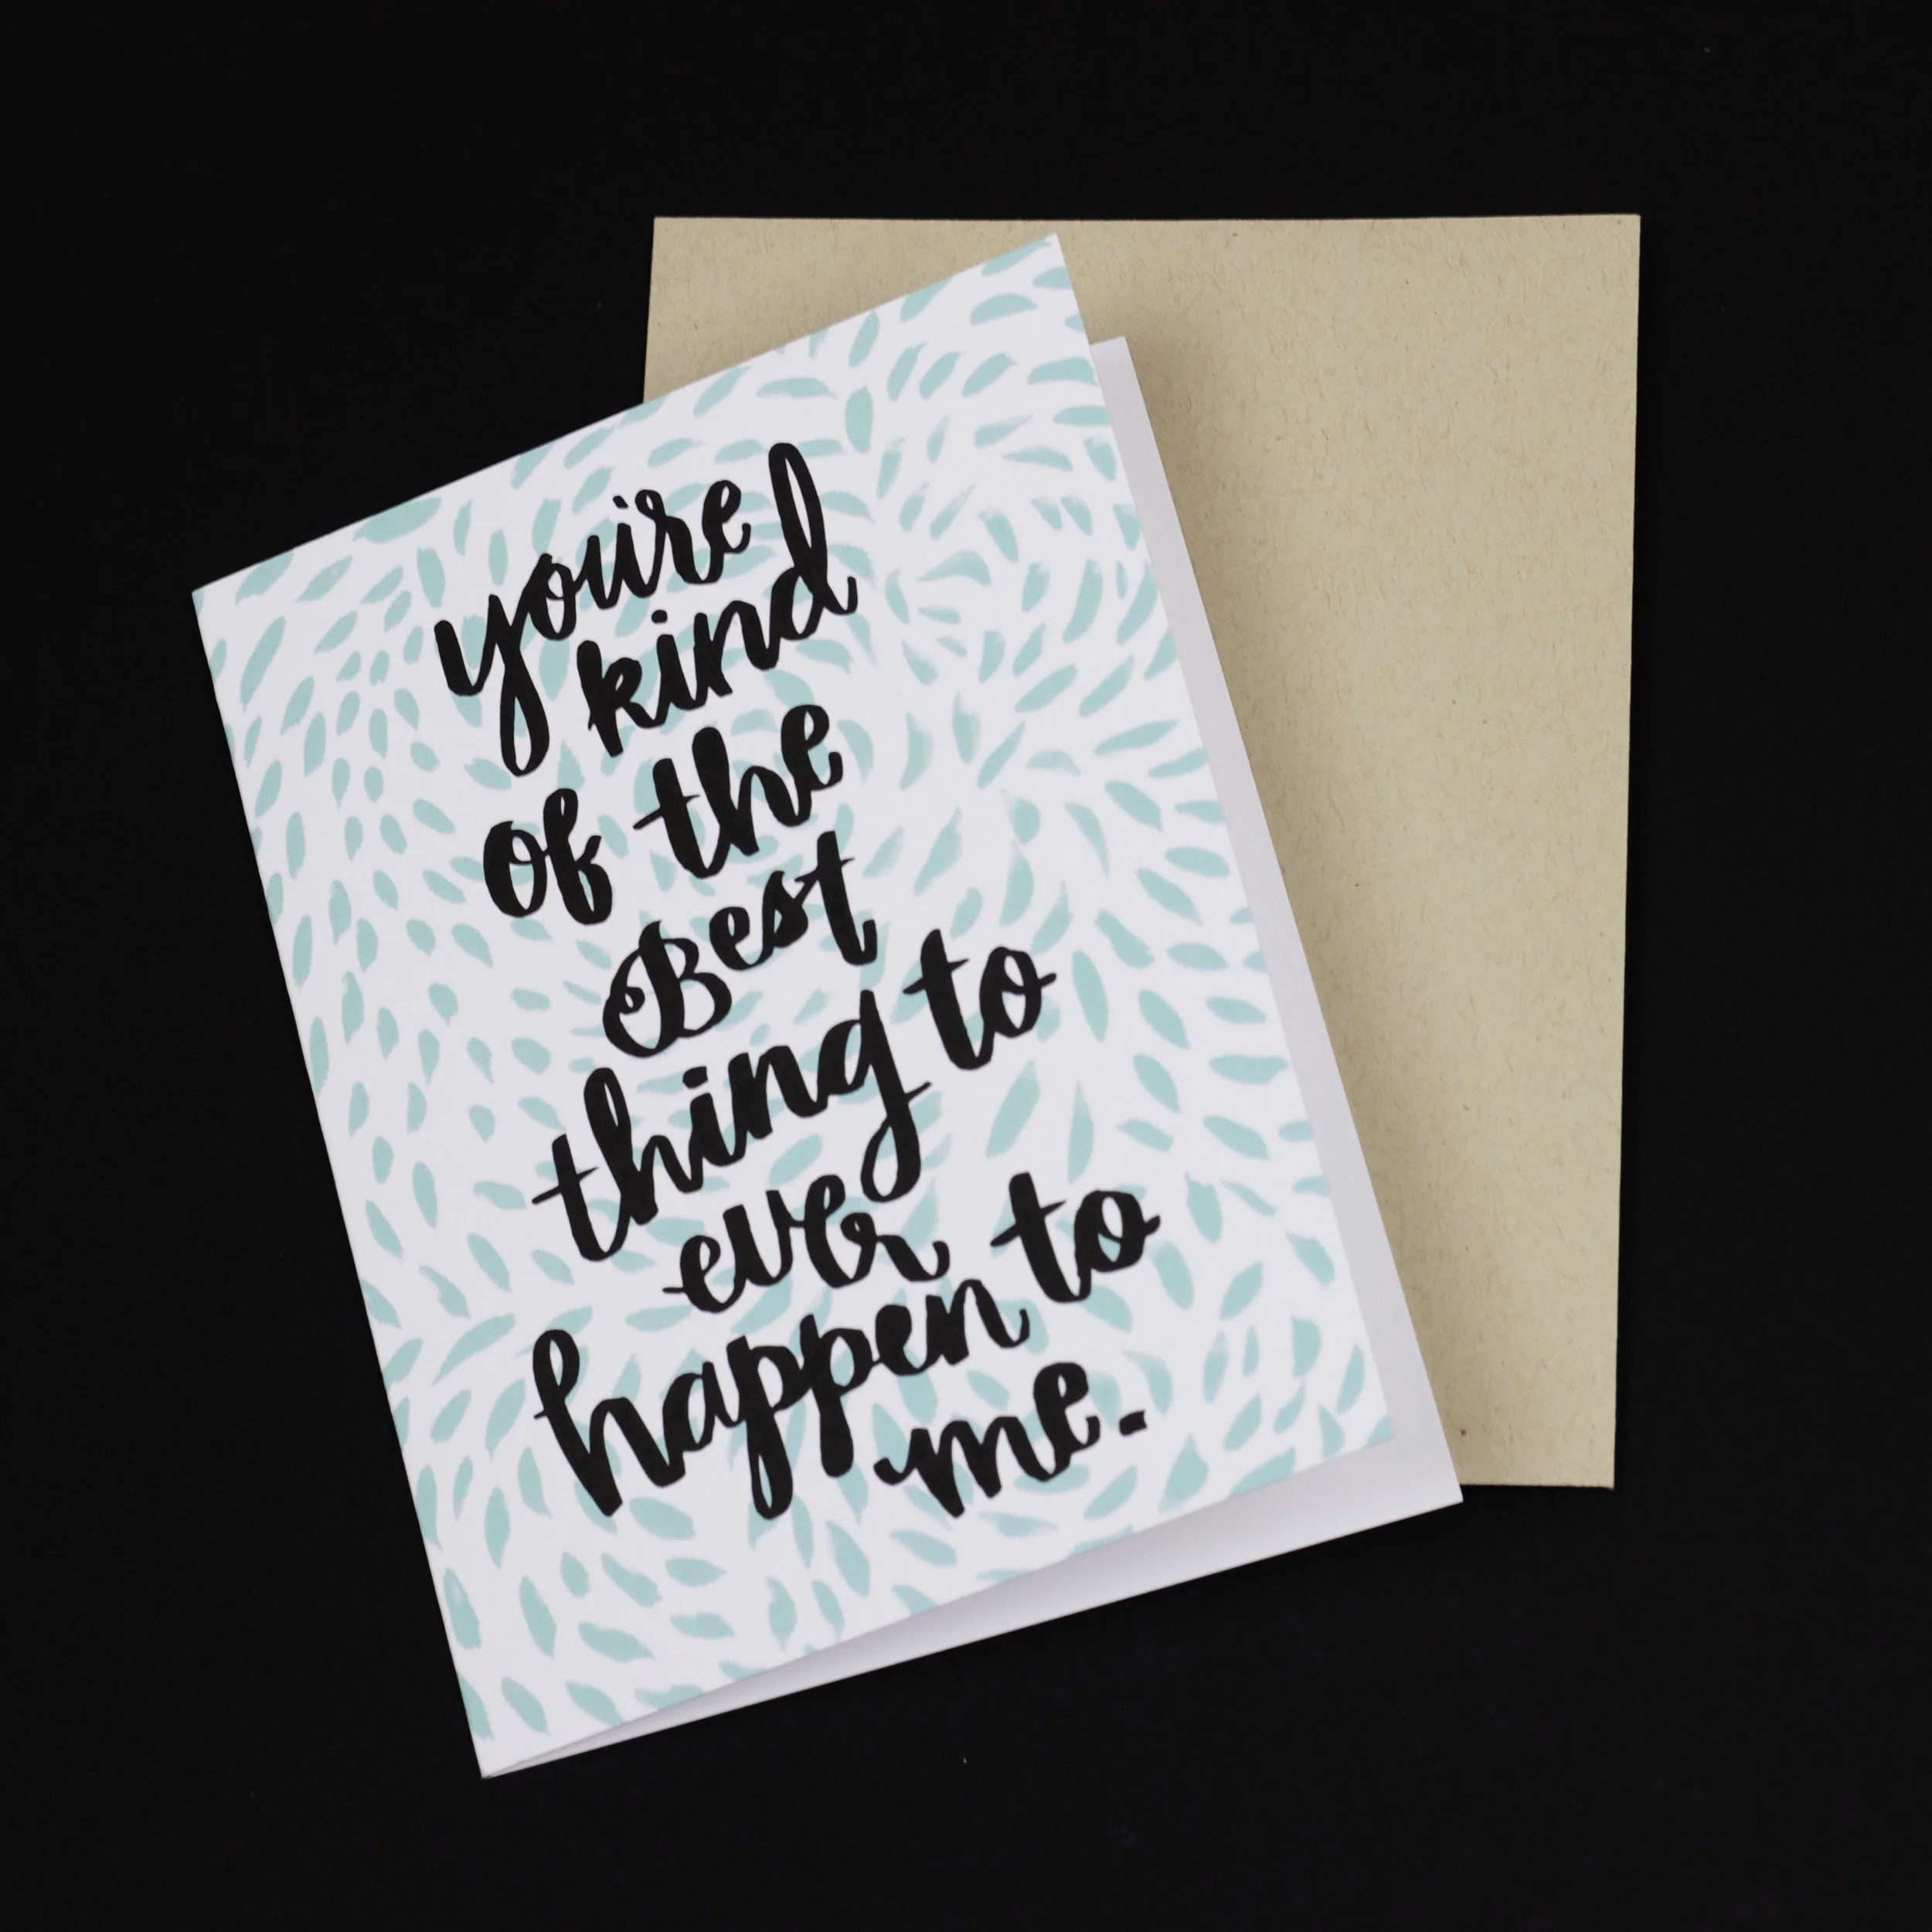 you're
kind
of the
Best
thing to
ever
happen to
me.